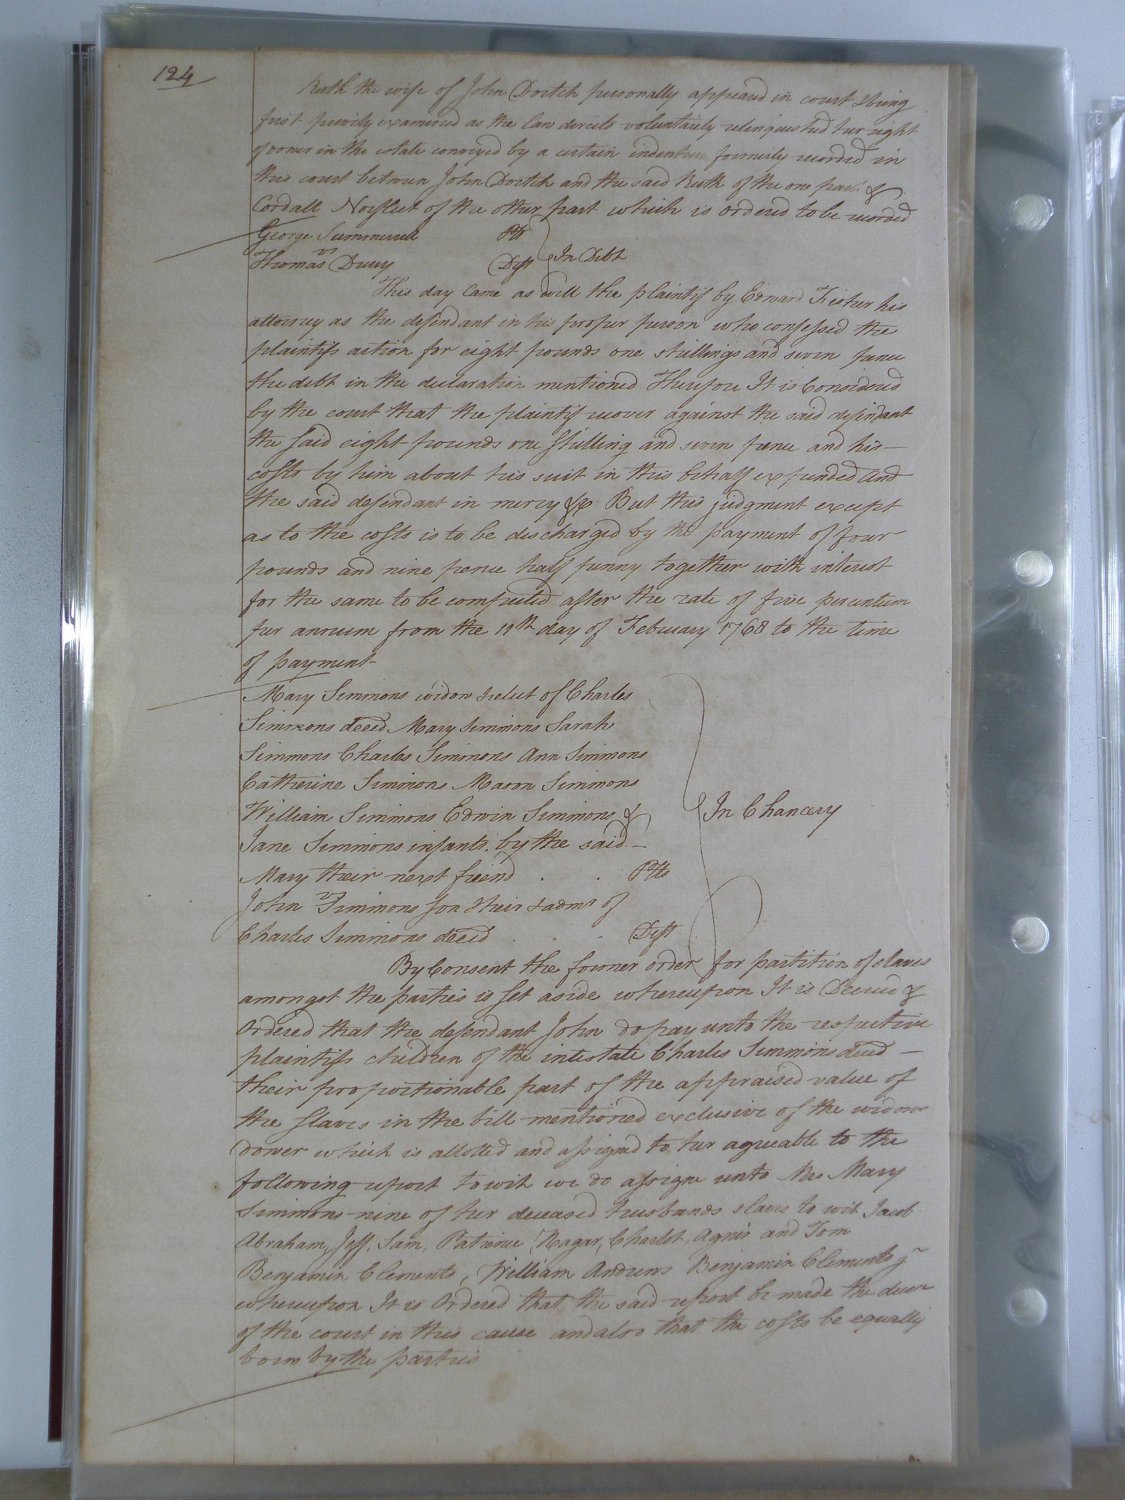 124
Ruth the wife of John Dortch personally appeared in court & being
first privily examined as the law directs voluntarily relinquished her right
of dower in the estate conveyed by a certain indenture formerly recorded in
this court between John Dortch and the said Ruth of the one part &
Cordall Norfleet of the other part which is ordered to be recorded
George Summerell Plt
vs In Debt
Thomas Drury Deft
This day came as well the plaintif by Edward Fisher his
attorney as the defendant in his proper person who confessed the
plaintifs action for eight pounds one shillings and seven pence
the debt in the declaration mentioned Therefore It is Considered
by the court that the plaintif recover against the said defendant
the said eight pounds one shilling and seven pence and his
costs by him about his suit in this behalf expended and
the said defendant in mercy &c But this judgment except
as to the costs is to be discharged by the payment of four
pounds and nine pence half penny together with interest
for the same to be computed after the rate of five percentum
per annum from the day of February 1768 to the time
of payment
Mary Simmons widow & relict of Charles
Simmons deced. Mary Simmons Sarah
Simmons Charles Simmons Ann Simmons
Catherine Simmons Mason Simmons
William Simmons Edwin Simmons &
Jane Simmons infants by the said
Mary their next friend . . Plts
In Chancery
John Simmons son & heir & admr of
Charles Simmons deced . . . Deft
By Consent the former order for partition of slaves
amongst the parties is set aside whereupon It is Decreed &
Ordered that the defendant John do pay unto the respective
plaintifs children of the intestate Charles Simmons deced
their proportionable part of the appraised value of
the slaves in the bill mentioned exclusive of the widows
dower which is allotted and assigned to her agreeable to the
following report to wit we do assign unto Mrs Mary
Simmons nine of her deceased husbands slaves to wit Jacob
Abraham, Jeff, Sam, Patience, Hagar, Charlot, Agnis and Tom
Benjamin Clements, William Andrews Benjamin Clements jr
whereupon It is Ordered that the said report be made the decree
of the court in this cause and also that the costs be equally
born by the parties